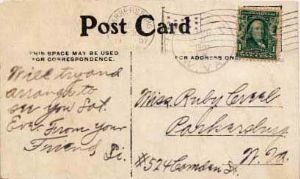 Post Card
THIS SPACE MAY BE USED
FOR CORRESPONDENCE.
FOR ADDRESS ONLY.
Will try and
arrange to
see you Sat.
Eve. From your
Friend
Miss Ruby
Parkersburg
#524 Camden St.
W. Va.